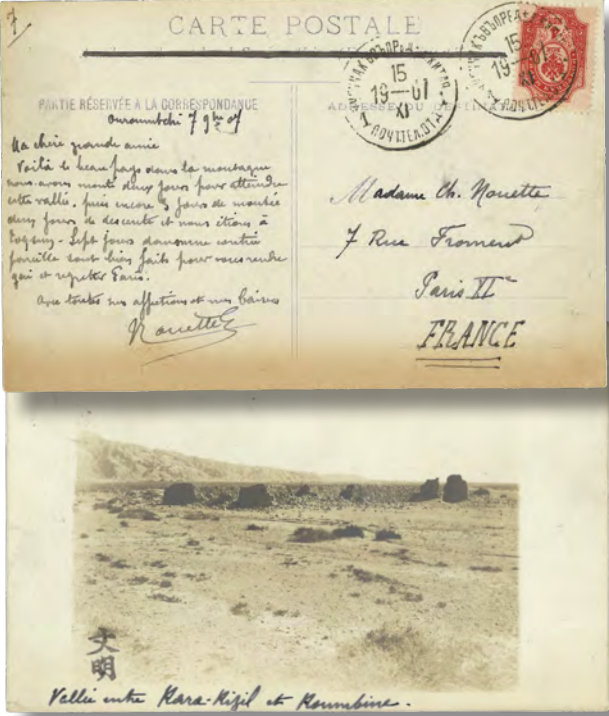 7
CARTE POSTALE
PARTIE RÉSERVÉE A LA CORRESPONDANCE
ADRESSE DU
Ouroumtchi 7 9bre 07
Ma chère grande amie
Voilà le beau pays dans la montagne
nous avons monté deux jours pour atteindre
cette vallée, puis encore 3 jours de montée
deux jours de descente et nous étions à
Toqsun - Sept jours dans une contrée
pareille sont bien faits pour vous rendre
gai et regretter Paris.
Avec toutes mes affections et mes baisers
Nouette
Madame Ch. Nouette
7 Rue Froment
Paris XIe
FRANCE
15
19—07
XI
1
15
19
07
XI
文明
Vallée entre Kara-Kizil et Koumbine.